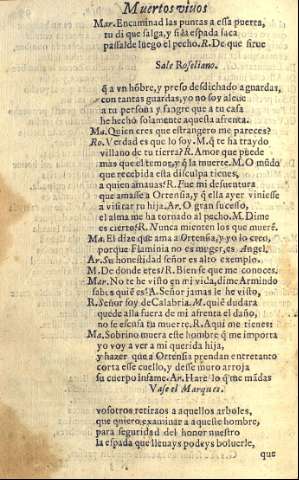 Muertos viuos
Mar. Encaminad las puntas a essa puerta,
tu di que salga, y si la espada saca
passalde luego el pecho. R. De que sirue
Sale Roseliano.
q̃ a vn hõbre, y preso desdichado aguardas,
con tantas guardas, yo no soy aleue
a tu persona y sangre que a tu casa
he hecho solamente aquesta afrenta.
Ma. Quien eres que estrangero me pareces?
Ro. Verdad es que lo soy. M. q̃ te ha traydo
villano de tu tierra? R. Amor que puede
mas que el temor, y q̃ la muerte. M. O mũdo
que recebida esta disculpa tienes,
a quien amauas? R. Fue mi desuentura
que amasse a Ortensia, y q̃ ella ayer viniesse
a visitar tu hija. Ar. O gran sucesso,
el alma me ha tornado al pecho. M. Dime
es cierto? R. Nunca mienten los que muerẽ.
Ma. El dize que ama a Ortensia, y yo lo creo,
porque Flaminia no es muger, es Angel.
Ar. Su honestidad señor es alto exemplo.
M. De donde eres? R. Bien se que me conoces.
Mar. No te he visto en mi vida, dime Armindo
sabes quiẽ es? A. Señor jamas le he visto,
R. Señor soy de Calabria. M. quiẽ dudara
quede alla fuera de mi afrenta el daño,
no se escusa tu muerte. R. Aqui me tienes:
Ma. Sobrino muera este hombre q̃ me importa
yo voy a ver a mi querida hija,
y hazer que a Ortensia prendan entretanto
corta esse cuello, y desse muro arroja
su cuerpo infame. Ar. Harè lo q̃ me mãdas
Vase el Marques.
vosotros retiraos a aquellos arboles,
que quiero examinar a aqueste hombre,
para seguridad del honor nuestro
la espada que lleuays podeys boluerle,
que